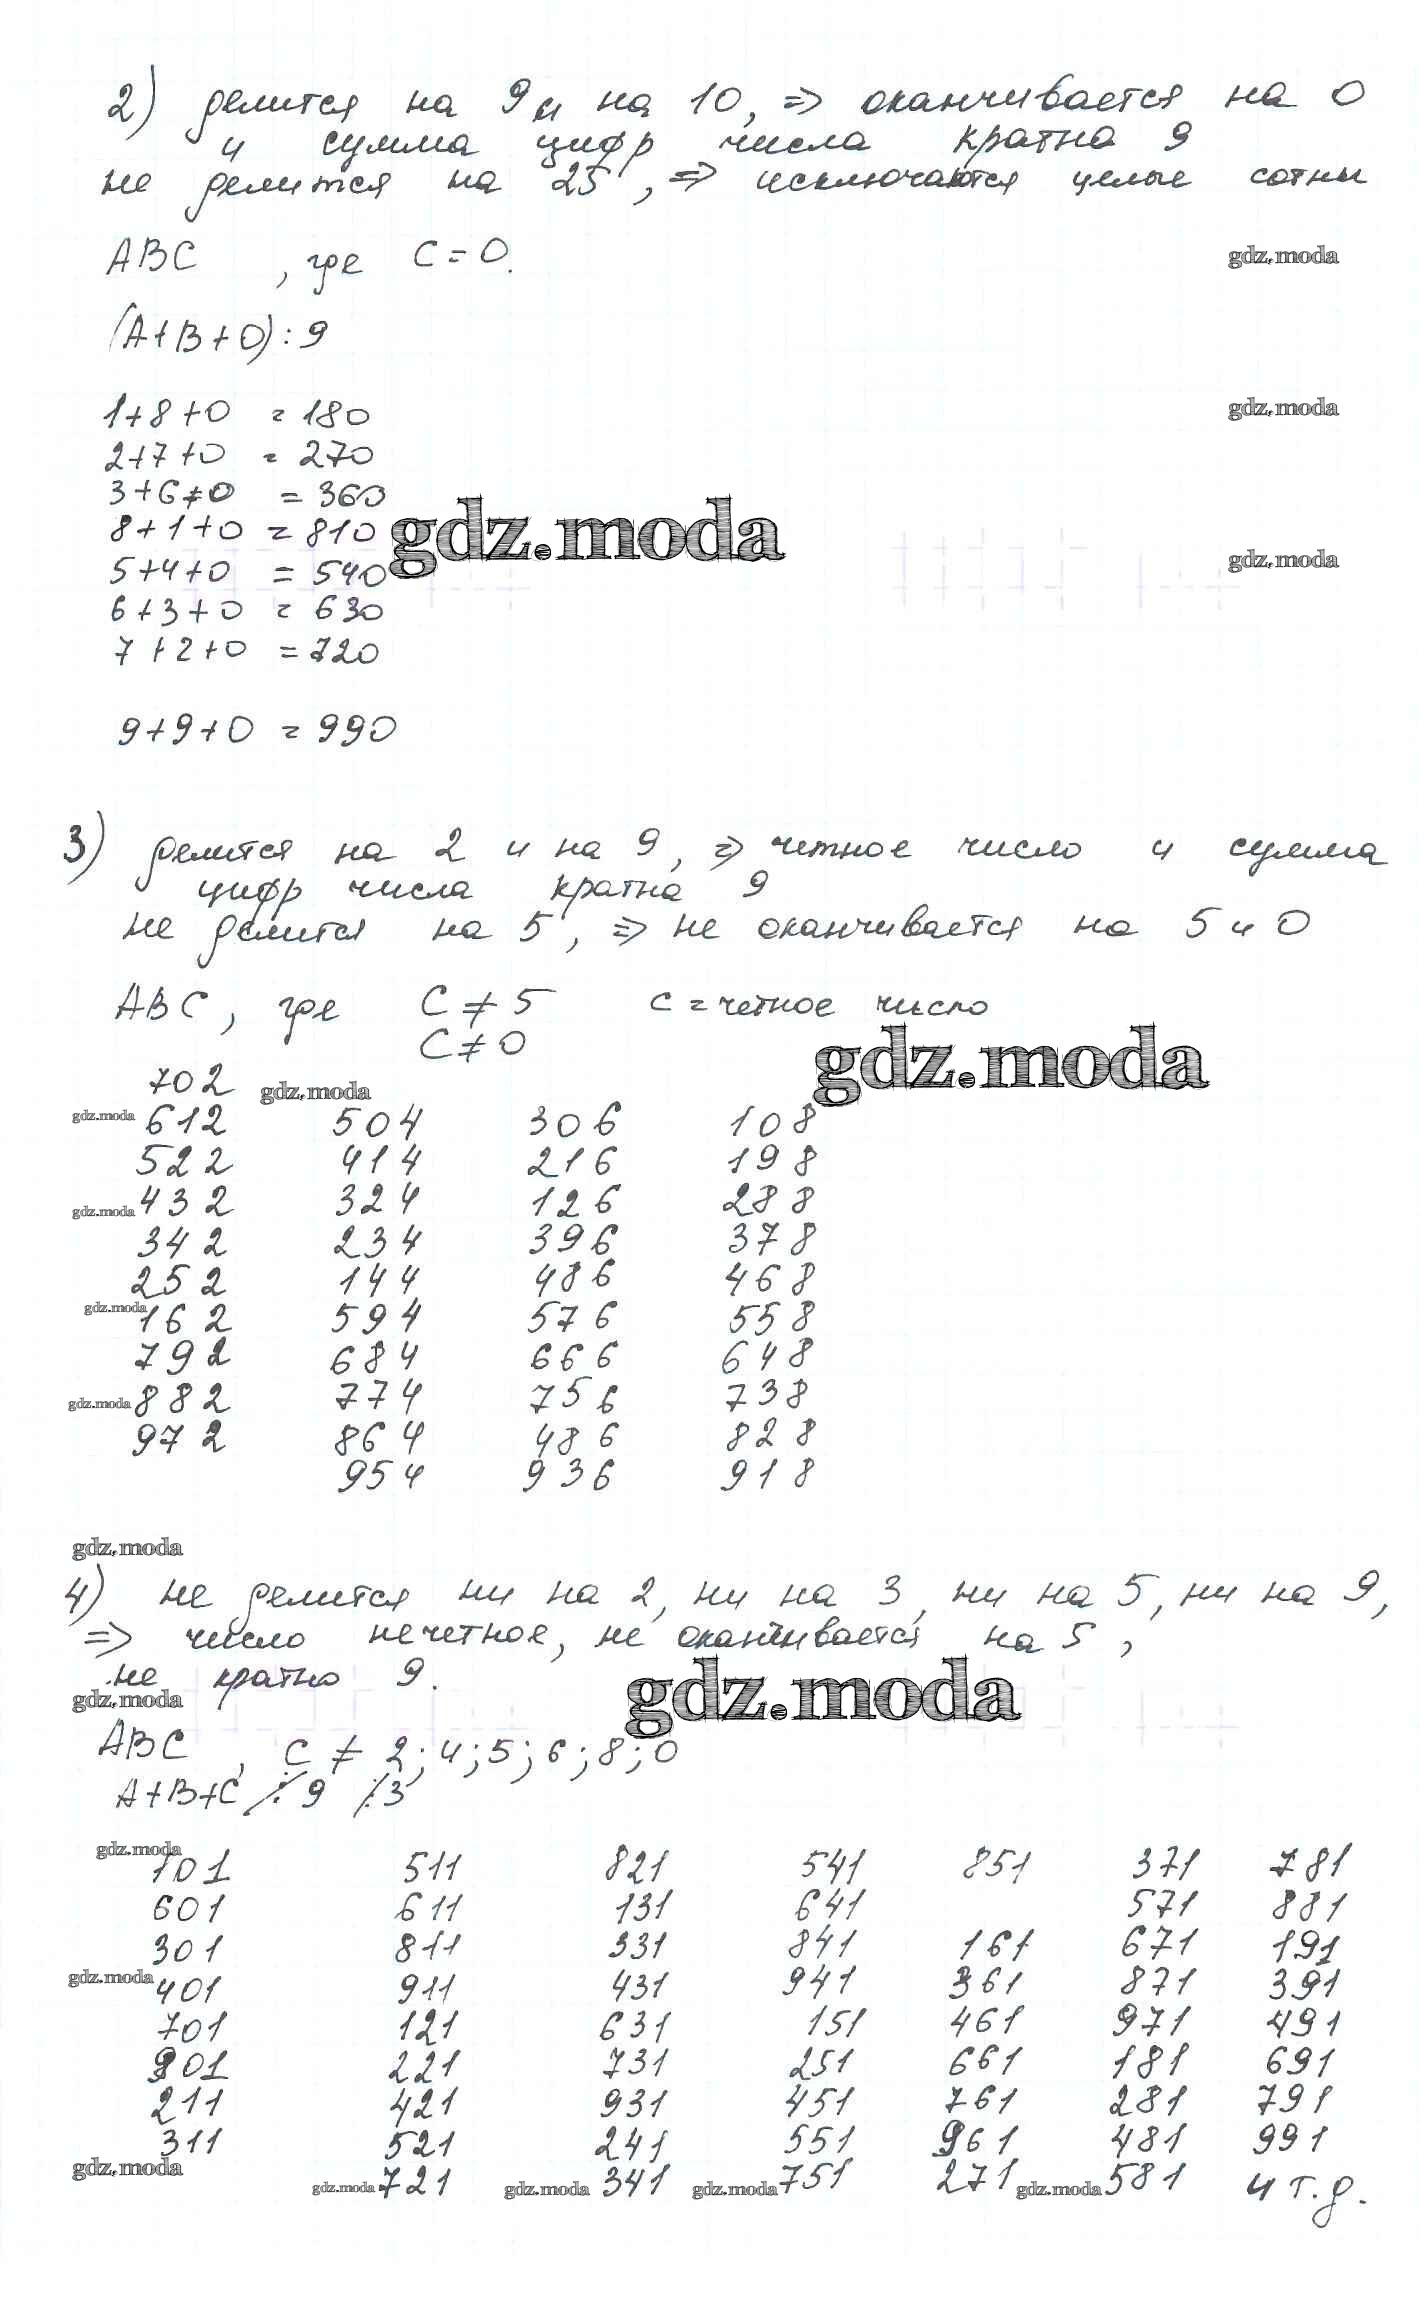 2) делится на 9 и на 10, => оканчивается на 0
и сумма цифр числа кратна 9
не делится на 25, => исключаются целые сотни
ABC , где C = 0.
gdz.moda
(A+B+0):9
1+8+0 = 180
gdz.moda
2+7+0 = 270
3+6+0 = 360
8+1+0 = 810
gdz.moda
5+4+0 = 540
gdz.moda
6+3+0 = 630
7+2+0 = 720
9+9+0 = 990
3) делится на 2 и на 9, => четное число и сумма
цифр числа кратна 9
не делится на 5, => не оканчивается на 5 и 0
ABC, где C ≠ 5 C = четное число
C ≠ 0
gdz.moda
702 gdz.moda
gdz.moda 612 504 306 108
522 414 216 198
gdz.moda 432 324 126 288
342 234 396 378
252 144 486 468
gdz.moda 162 594 576 558
792 684 666 648
gdz.moda 882 774 756 738
972 864 486 828
954 936 918
gdz.moda
4) не делится ни на 2, ни на 3, ни на 5, ни на 9,
=> число нечетное, не оканчивается на 5,
не кратно 9.
gdz.moda gdz.moda
ABC , C ≠ 2; 4; 5; 6; 8; 0
A+B+C :9 :3
gdz.moda
101 511 821 541 851 371 781
601 611 131 641 571 881
301 811 331 841 161 671 191
gdz.moda 401 911 431 941 361 871 391
701 121 631 151 461 971 491
901 221 731 251 661 181 691
211 421 931 451 761 281 791
311 521 241 551 961 481 991
gdz.moda gdz.moda 721 gdz.moda 341 gdz.moda 751 271 gdz.moda 581 и т.д.